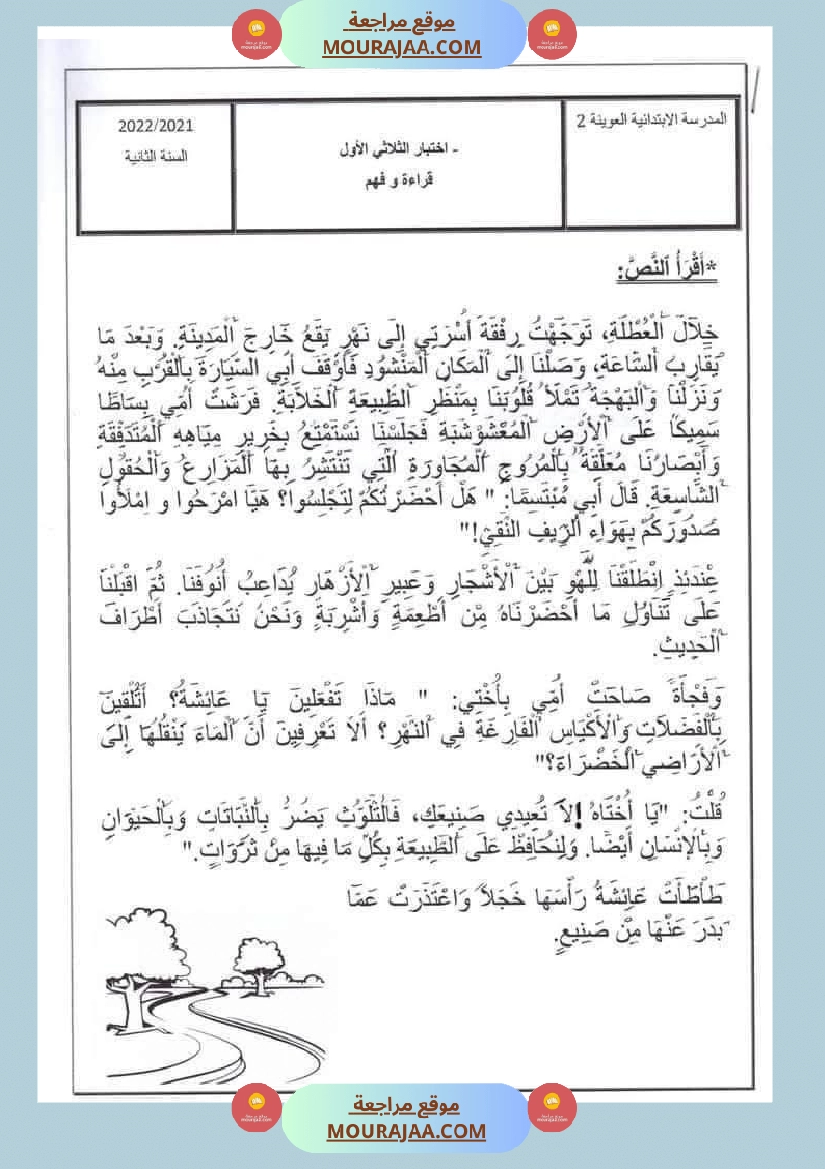 موقع مراجعة
MOURAJAA.COM
المدرسة الابتدائية العوينة 2
- اختبار الثلاثي الأول
قراءة و فهم
2022/2021
السنة الثانية
*أَقْرَأُ النَّصَّ:
خِلَالَ الْعُطْلَةِ، تَوَجَّهْتُ رِفْقَةَ أُسْرَتِي إِلَى نَهْرٍ يَقَعُ خَارِجَ الْمَدِينَةِ. وَبَعْدَ مَا
يُقَارِبُ السَّاعَةِ، وَصَلْنَا إِلَى الْمَكَانِ الْمَنْشُودِ فَأَوْقَفَ أَبِي السَّيَّارَةَ بِالْقُرْبِ مِنْهُ
وَنَزَلْنَا وَالْبَهْجَةُ تَمْلَأُ قُلُوبَنَا بِمَنْظَرِ الطَّبِيعَةِ الْخَلَّابَةِ. فَرَشَتْ أُمِّي بِسَاطًا
سَمِيكًا عَلَى الْأَرْضِ الْمُعْشَوْشَبَةِ فَجَلَسْنَا نَسْتَمْتِعُ بِخَرِيرِ مِيَاهِهِ الْمُتَدَفِّقَةِ
وَأَبْصَارُنَا مُعَلَّقَةٌ بِالْمُرُوجِ الْمُجَاوِرَةِ الَّتِي تَنْتَشِرُ بِهَا الْمَزَارِعُ وَالْحُقُولُ
الشَّاسِعَةِ. قَالَ أَبِي مُبْتَسِمًا: " هَلْ أَحْضَرْتُكُمْ لِتَجْلِسُوا؟ هَيَّا امْرَحُوا و امْلَأُوا
صُدُورَكُمْ بِهَوَاءِ الرِّيفِ النَّقِيِّ!"
عِنْدَئِذٍ اِنْطَلَقْنَا لِلَّهْوِ بَيْنَ الْأَشْجَارِ وَعَبِيرِ الْأَزْهَارِ يُدَاعِبُ أُنُوفَنَا. ثُمَّ اقْبَلْنَا
عَلَى تَنَاوُلِ مَا أَحْضَرْنَاهُ مِنْ أَطْعِمَةٍ وَأَشْرِبَةٍ وَنَحْنُ نَتَجَاذَبَ أَطْرَافَ
الْحَدِيثِ.
وَفَجْأَةً صَاحَتْ أُمِّي بِأُخْتِي: " مَاذَا تَفْعَلِينَ يَا عَائِشَةُ؟ أَتُلْقِينَ
بِالْفَضَلَاتِ وَالْأَكْيَاسِ الْفَارِغَةِ فِي النَّهْرِ؟ أَلَا تَعْرِفِينَ أَنَّ الْمَاءَ يَنْقُلُهَا إِلَى
الْأَرَاضِي الْخَضْرَاءَ؟"
قُلْتُ: "يَا أُخْتَاهُ !لَا تُعِيدِي صَنِيعَكِ، فَالتَّلَوُّثُ يَضُرُّ بِالنَّبَاتَاتِ وَبِالْحَيَوَانِ
وَبِالْإِنْسَانِ أَيْضًا. وَلِنُحَافِظْ عَلَى الطَّبِيعَةِ بِكُلِّ مَا فِيهَا مِنْ ثَرَوَاتٍ."
طَأْطَأَتْ عَائِشَةُ رَأْسَهَا خَجَلًا وَاعْتَذَرَتْ عَمَّا
بَدَرَ عَنْهَا مِنْ صَنِيعٍ.
موقع مراجعة
MOURAJAA.COM